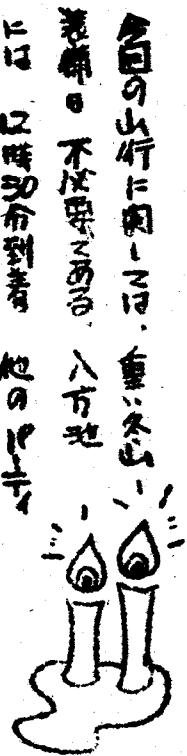 今回の山行に関しては、重い冬山
装備は不必要である。八方池
には 12時30分到着 他のパーティ